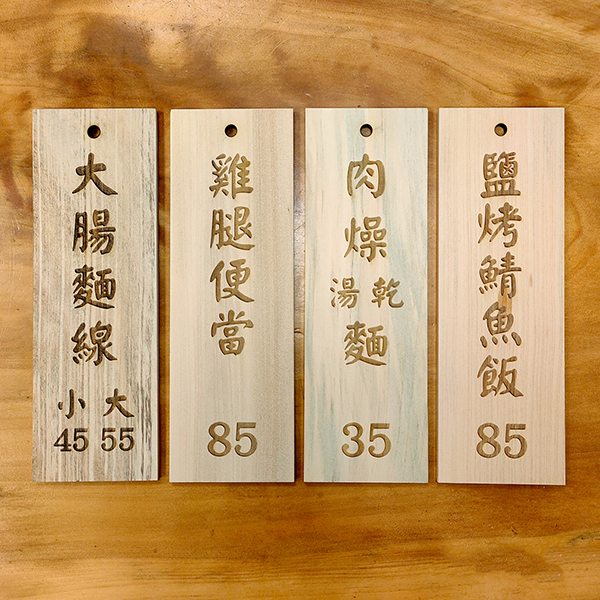 大腸麵線
小 大
45 55
雞腿便當
85
肉燥
湯 乾
麵
35
鹽烤鯖魚飯
85